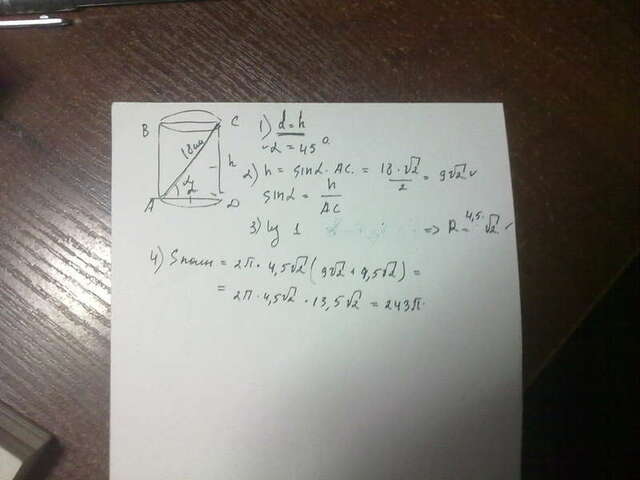 B C
18см
h
α
A D
1) d=h
α = 45°
2) h = sinα · AC = 18·√2/2 = 9√2
sinα = h/AC
3) из 1 => R = 4,5√2
4) Sполн = 2π · 4,5√2 (9√2 + 4,5√2) =
= 2π · 4,5√2 · 13,5√2 = 243π.